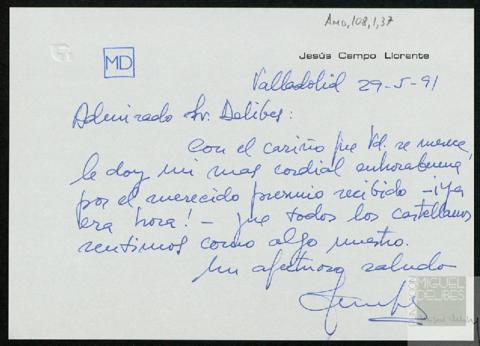 AMD,108,1,37
MD
Jesús Campo Llorente
Valladolid 29-5-91
Admirado Sr. Delibes:
Con el cariño que Vd. se merece,
le doy mi mas cordial enhorabuena
por el merecido premio recibido -¡ya
era hora!- que todos los castellanos
sentimos como algo nuestro.
Un afectuoso saludo
FUNDACIÓN
MIGUEL
DELIBES